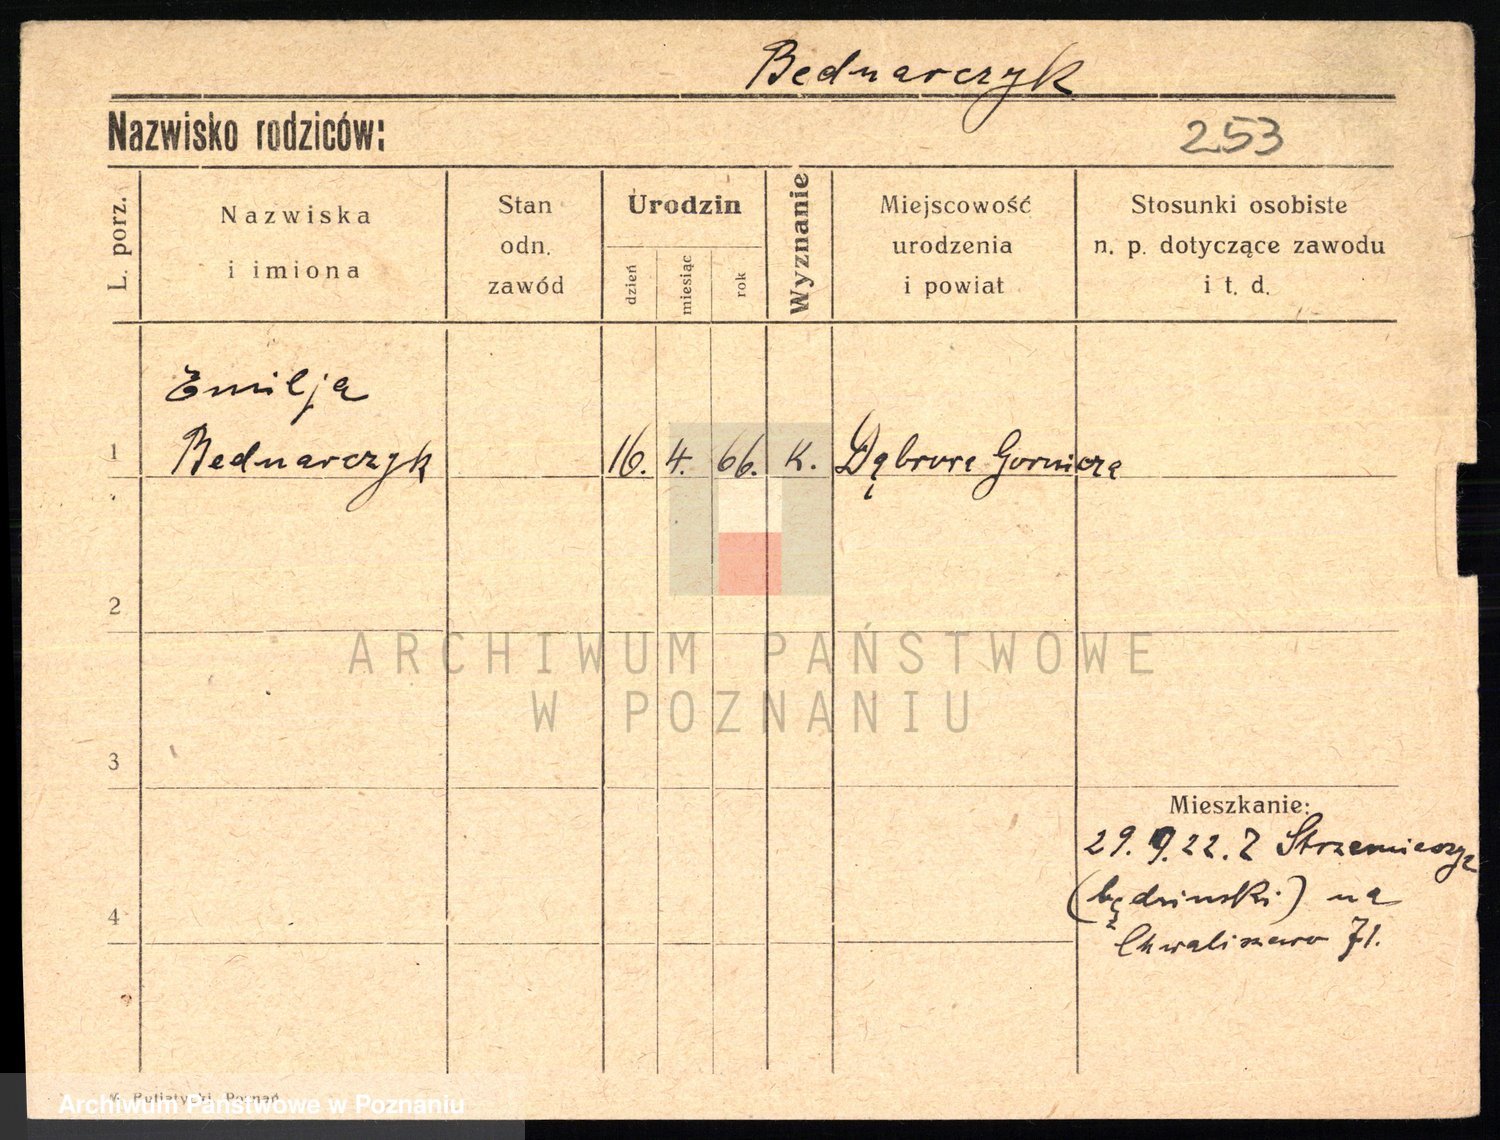 Bednarczyk
Nazwisko rodziców:
253
L. porz.
Nazwiska
i imiona
Stan
odn.
zawód
Urodzin
dzień
miesiąc
rok
Wyznanie
Miejscowość
urodzenia
i powiat
Stosunki osobiste
n. p. dotyczące zawodu
i t. d.
Emilja
1 Bednarczyk 16. 4. 66. K. Dąbrowa Gornicza
2
ARCHIWUM PAŃSTWOWE
W POZNANIU
3
Mieszkanie:
29. 9. 22. Z Strzemieszyc
(będzinski) na
4
Chwaliszewo 71.
Putiatycki, Poznań
Archiwum Państwowe w Poznaniu